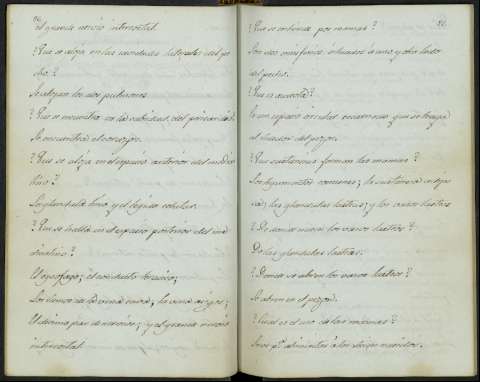 el grande nervio intercostal.
? Que se aloja en las cavidades laterales del pe
cho ?
Se alojan los dos pulmones
? Que se encuentra en la cabidad del pericardio ?
Se encuentra el corazon.
? Que se aloja en el espacio anterior del medias
tino ?
La glandula timo, y el tegido celular.
? Que se halla en el espacio posterior del me
diastino ?
El esofago; el conducto toracico;
los ramos de la vena cava; la vena azigos;
el decimo par de nervios; y el grande nervio
intercostal.
? Que se entiende por mamas ?
Son dos eminencias situadas a uno, y otro lado
del pecho.
? Que es aureola ?
Es un espacio circular que se
al rededor del pezon.
? Que sustancias forman las mamas ?
Los tegumentos comunes; la sustancia adipo
sa; las glandulas lacteas; y los vasos lacteos
? De donde nacen los vasos lacteos ?
De las glandulas lacteas.
? Donde se abren los vasos lacteos ?
Se abren en el pezon.
? Cual es el uso de las mamas ?
Sirven pa. alimentar a los recien nacidos.